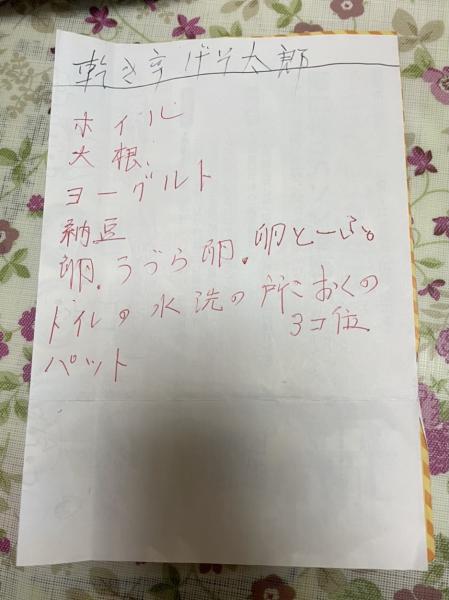 乾き亭げそ太郎
ホイル
大根、
ヨーグルト
納豆
卵。うづら卵。卵とーふ。
トイレの水洗の所におくの
3コ位
パット